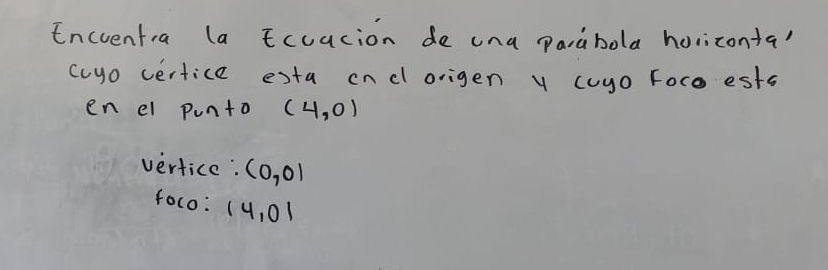 Encuentra la Ecuación de una parábola horizontal
cuyo vértice esta en el origen y cuyo Foco esta
en el punto (4,0)
vértice: (0,0)
foco: (4,0)